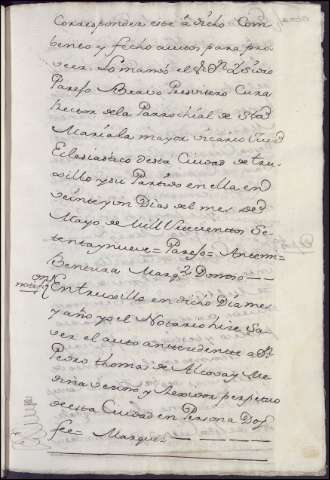 Corresponder este â dicho Com
bento y fecho autos para pro
veer. Lo mandó el Sr Dn
Paresa Bravo Presvitero Cura
Rector dela Parrochial de Sta
Maria la mayor vicario Juez
Eclesiastico desta Ciudad de tru-
xillo y su Partido en ella en
veinte y un Dias del mes de
Mayo de Mill Setecientos Se-
tenta y nueve =
Bentura Marqz
En truxillo en dicho Dia mes
y año yo el Notario hice Sa-
ver el auto antezedente a Dn
Pedro thomas de y Me-
dina vezino y Rexidor perpetuo
de esta Ciudad en Persona Doy
fee = Marques